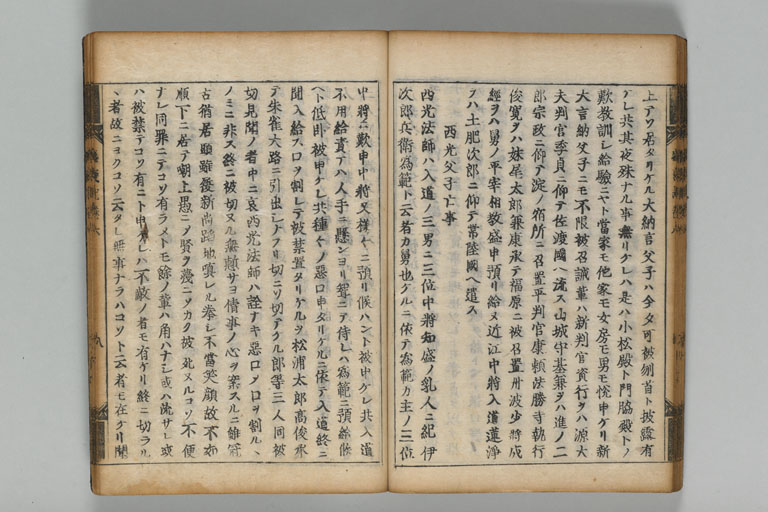 上アツ居タリケル大納言父子ハ今夕可被刎首ト披露有
ケレ共其夜殊ナル事無リケレハ是ハ小松殿ト門脇殿トノ
歎教訓シ給驗ニヤト當家モ他家モ女房モ男モ悦申ケリ新
大言納父子ニモ不限被召誡輩ハ新判官資行ヲハ源大
夫判官季貞ニ仰テ佐渡國ヘ流ス山城守基兼ヲハ進ノ二
郎宗政ニ仰テ淀ノ宿所ニ召置平判官康頼法勝寺執行
俊寛ヲハ妹尾太郎兼康承テ福原ニ被召置丹波少將成
經ヲハ舅ノ平宰相教盛申預リ給ヌ近江中將入道蓮淨
ヲハ土肥次郎ニ仰テ常陸國ヘ遣ス
西光父子亡事
西光法師ハ入道ノ三男ニ三位中將知盛ノ乳人ニ紀伊
次郎兵衛為範ト云者カ舅也ケルニ依テ為範カ主ノ三位
中將ニ歎申中將又様々ニ預リ候ハント被申ケレ共入道
不用給責テハ人手ニ懸ンヨリ賀ニテ侍レハ為範ニ預給候
ヘト低臥被申ケレ共種々ノ惡口申タリケルニ依テ入道終ニ
聞入給ス口ヲ割レテ被禁置タリケルヲ松浦太郎高俊承
テ朱雀大路ニ引出シナフリ切ニソ切テケル郎等三人同被
切見聞ノ者中ニ哀西光法師ハ詮ナキ惡口メ口ヲ割ル、
ノミニ非ス終ニ被切ヌル無慙サヨ倩事ノ心ヲ案スルニ雖冠
古猶居頭雖履新尚踏地嗔レル拳レ不當笑顔故不如
順下ニ居テ嘲上愚ニメ賢ヲ幾ニソカク被死ヌルコソ不便
ナレ同罪ニテコソ有ラメトモ餘ノ輩ハ角ハナシ或ハ流サレ或
ハ被禁テコソ有ニト申ケレハ不敵ノ者モ有ケリ終ニ切ラル
、者故ニヨクコソ云タレ無事ナラハコソト云者モ在ケリ聞